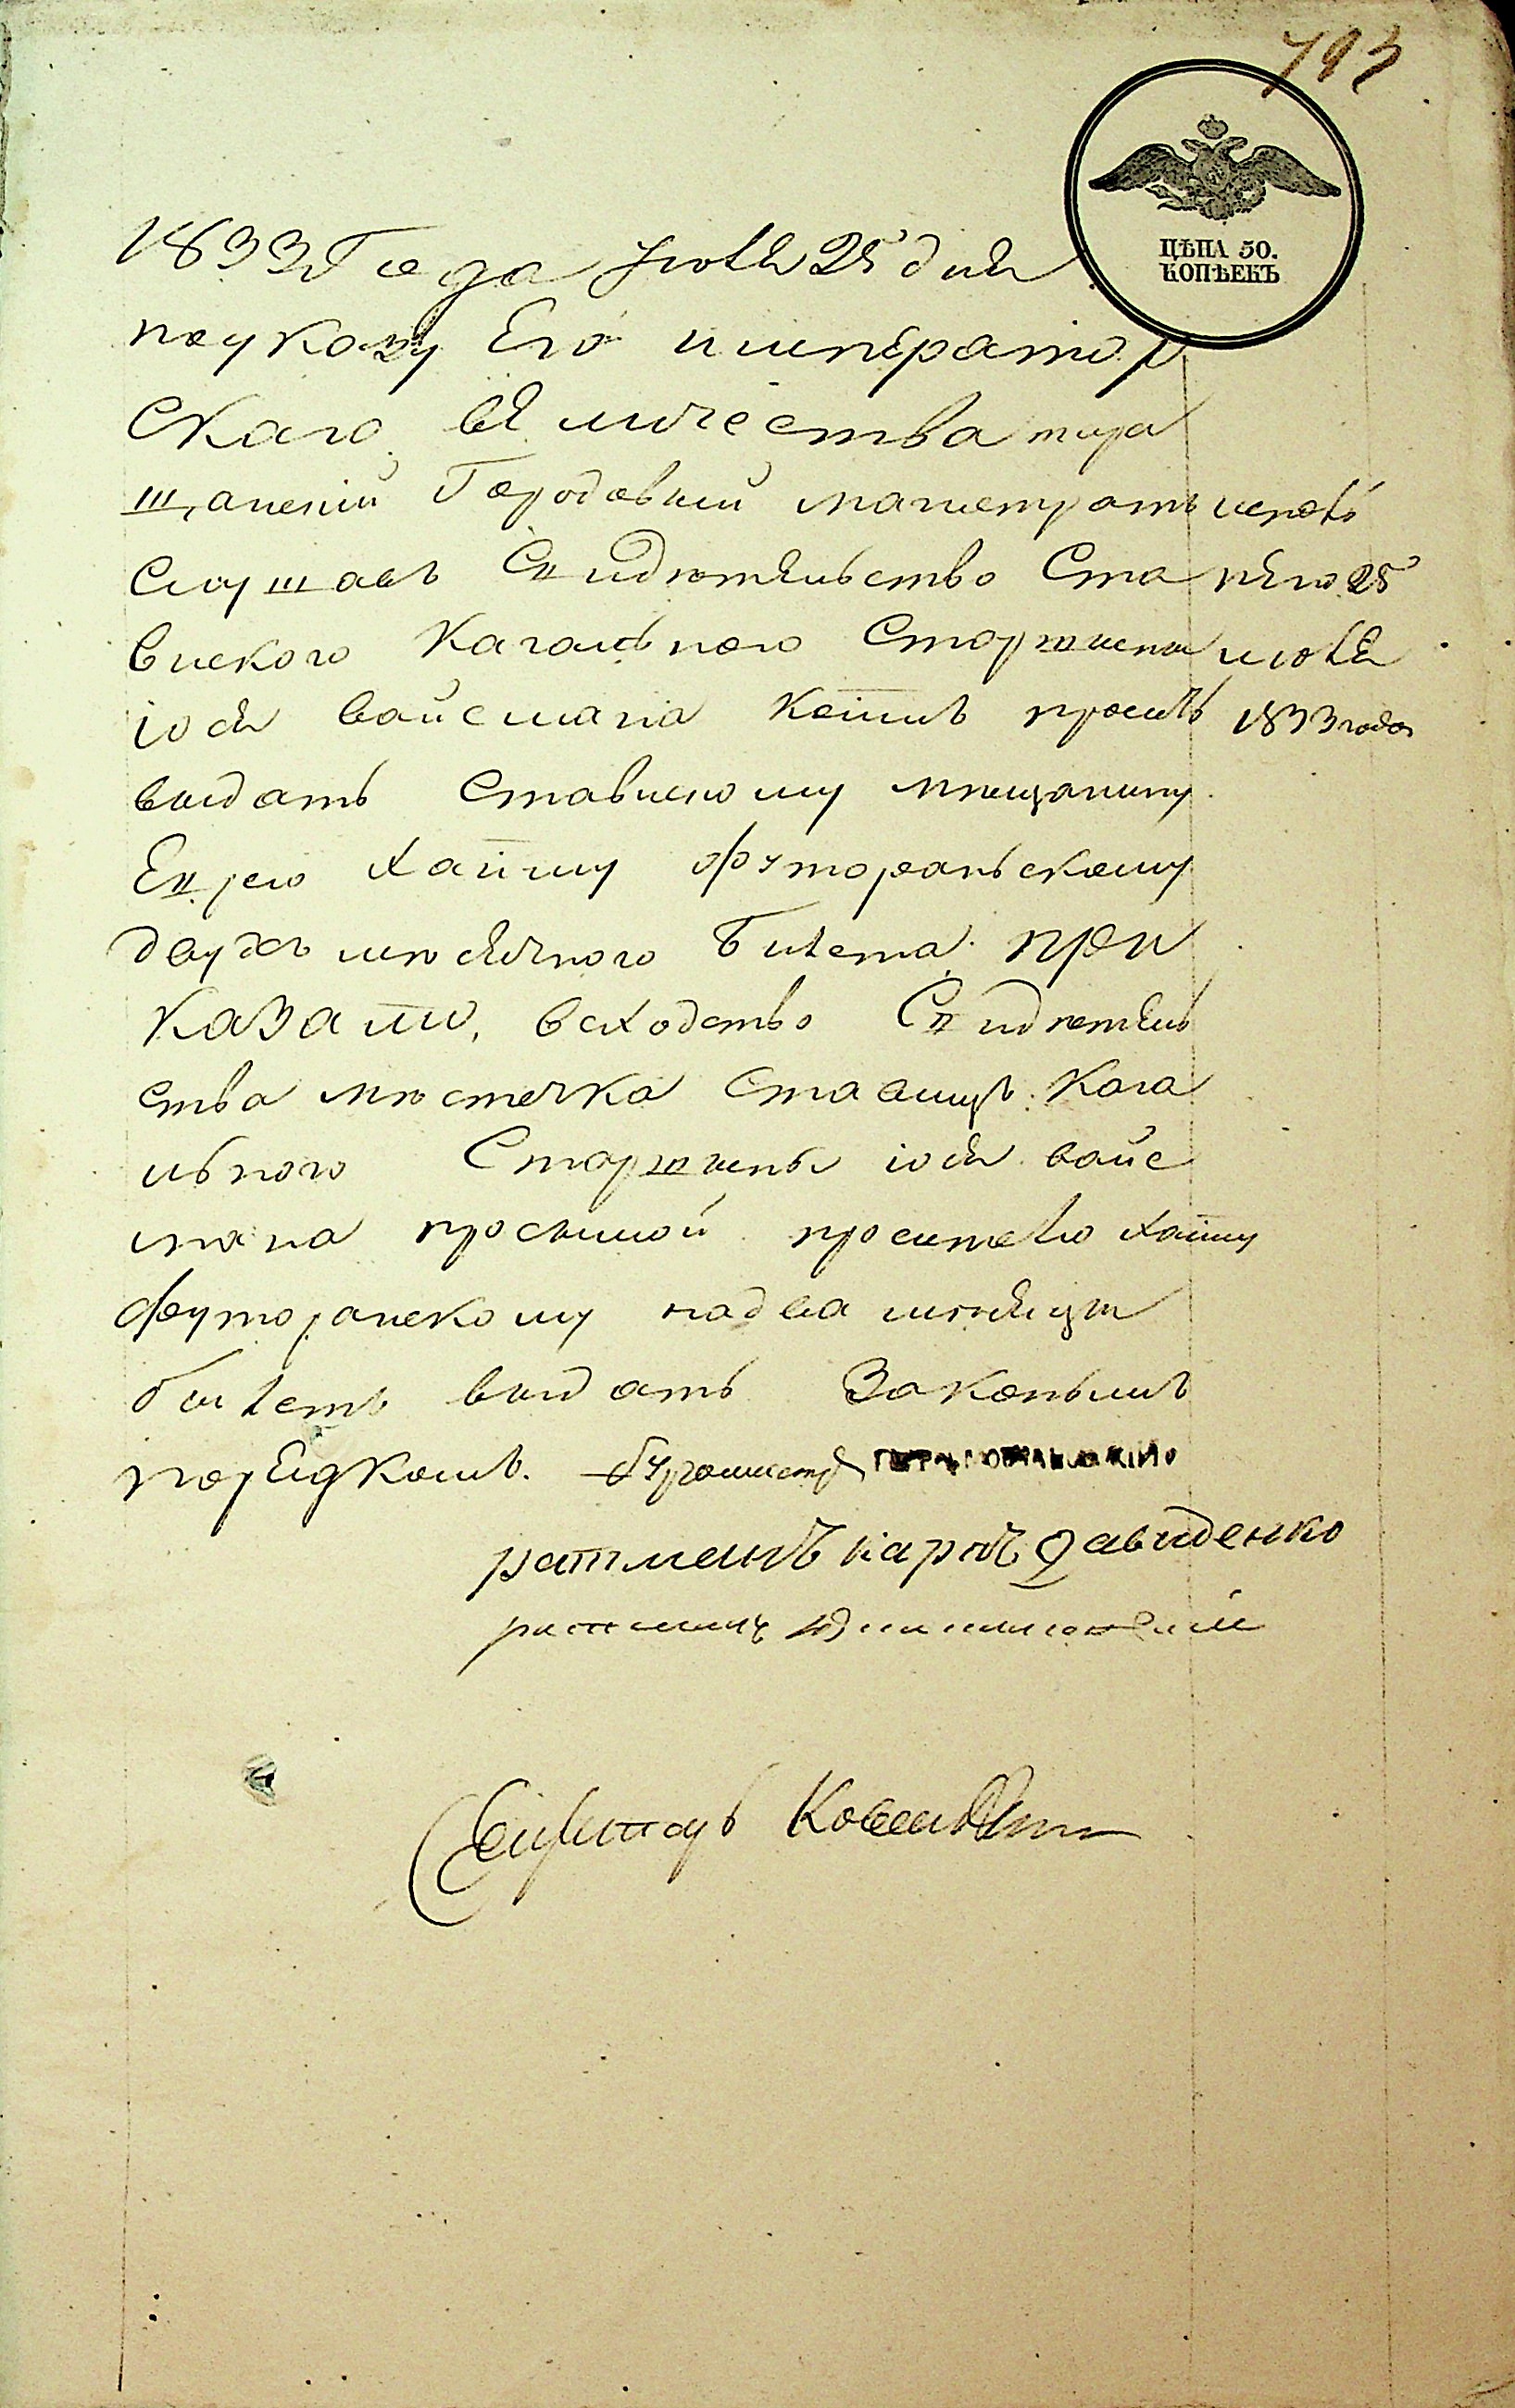 793
ЦѢНА 50.
КОПѢЕКЪ
1833 Года Июля 25 дня
поуказу Его император
скаго величества тара
щанскій Городовый магистратъ
слушавъ Свидѣтельство Ста
виского кагального Старшины
іося вайсмана коимъ проситъ
выдать Ставискому мѣщанину
Еврею хаиму футоранскому
двухъ мѣсячного билета при
казали, всходство Свидѣтель
ства мѣстечка Ставищъ Кага
льного Старшины іося вайс
мана просимой просителю хаиму
футоранскому надва мѣсяца
билетъ выдать законымъ
порядкомъ. бургомистръ
ратманъ карпъ Давиденко
ратманъ
Секретарь
исполнено 25
июля
1833 года